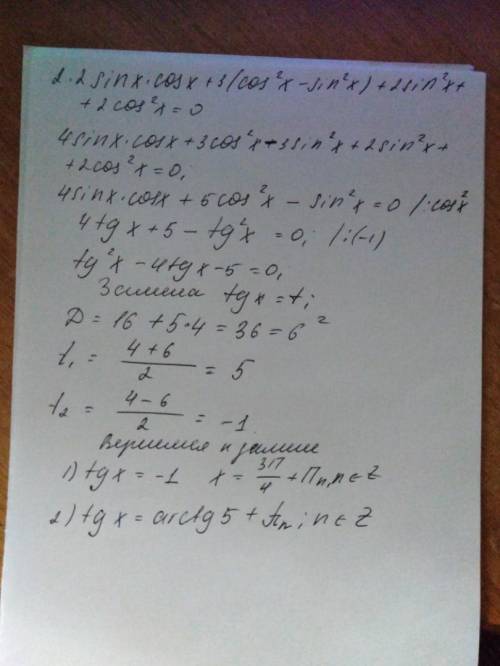 2·2sinx·cosx+3(cos²x-sin²x)+2sin²x+
+2cos²x=0
4sinx·cosx+3cos²x-3sin²x+2sin²x+
+2cos²x=0;
4sinx·cosx+5cos²x-sin²x=0 /:cos²x
4tgx+5-tg²x=0; /:(-1)
tg²x-4tgx-5=0;
Замена tgx=t;
D=16+5·4=36=6²
t₁=(4+6)/2=5
t₂=(4-6)/2=-1
Вернимся к замине
1) tgx=-1 x=3П/4+Пn, n∈Z
2) tgx=arctg5+πn; n∈Z